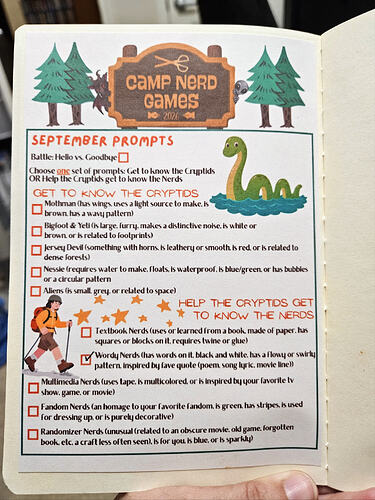 CAMP NERD
GAMES
2026
SEPTEMBER PROMPTS
Battle: Hello vs. Goodbye
Choose one set of prompts: Get to know the Cryptids
OR Help the Cryptids get to know the Nerds
GET TO KNOW THE CRYPTIDS
Mothman (has wings, uses a light source to make, is
brown, has a wavy pattern)
Bigfoot & Yeti (is large, furry, makes a distinctive noise, is white or
brown, or is related to footprints)
Jersey Devil (something with horns, is leathery or smooth, is red, or is related to
dense forests)
Nessie (requires water to make, floats, is waterproof, is blue/green, or has bubbles
or a circular pattern
Aliens (is small, grey, or related to space)
HELP THE CRYPTIDS GET
TO KNOW THE NERDS
Textbook Nerds (uses or learned from a book, made of paper, has
squares or blocks on it, requires twine or glue)
Wordy Nerds (has words on it, black and white, has a flowy or swirly
pattern, inspired by fave quote (poem, song lyric, movie line))
Multimedia Nerds (uses tape, is multicolored, or is inspired by your favorite tv
show, game, or movie)
Fandom Nerds (an homage to your favorite fandom, is green, has stripes, is used
for dressing up, or is purely decorative)
Randomizer Nerds (unusual (related to an obscure movie, old game, forgotten
book, etc, a craft less often seen), is for you, is blue, or is sparkly)